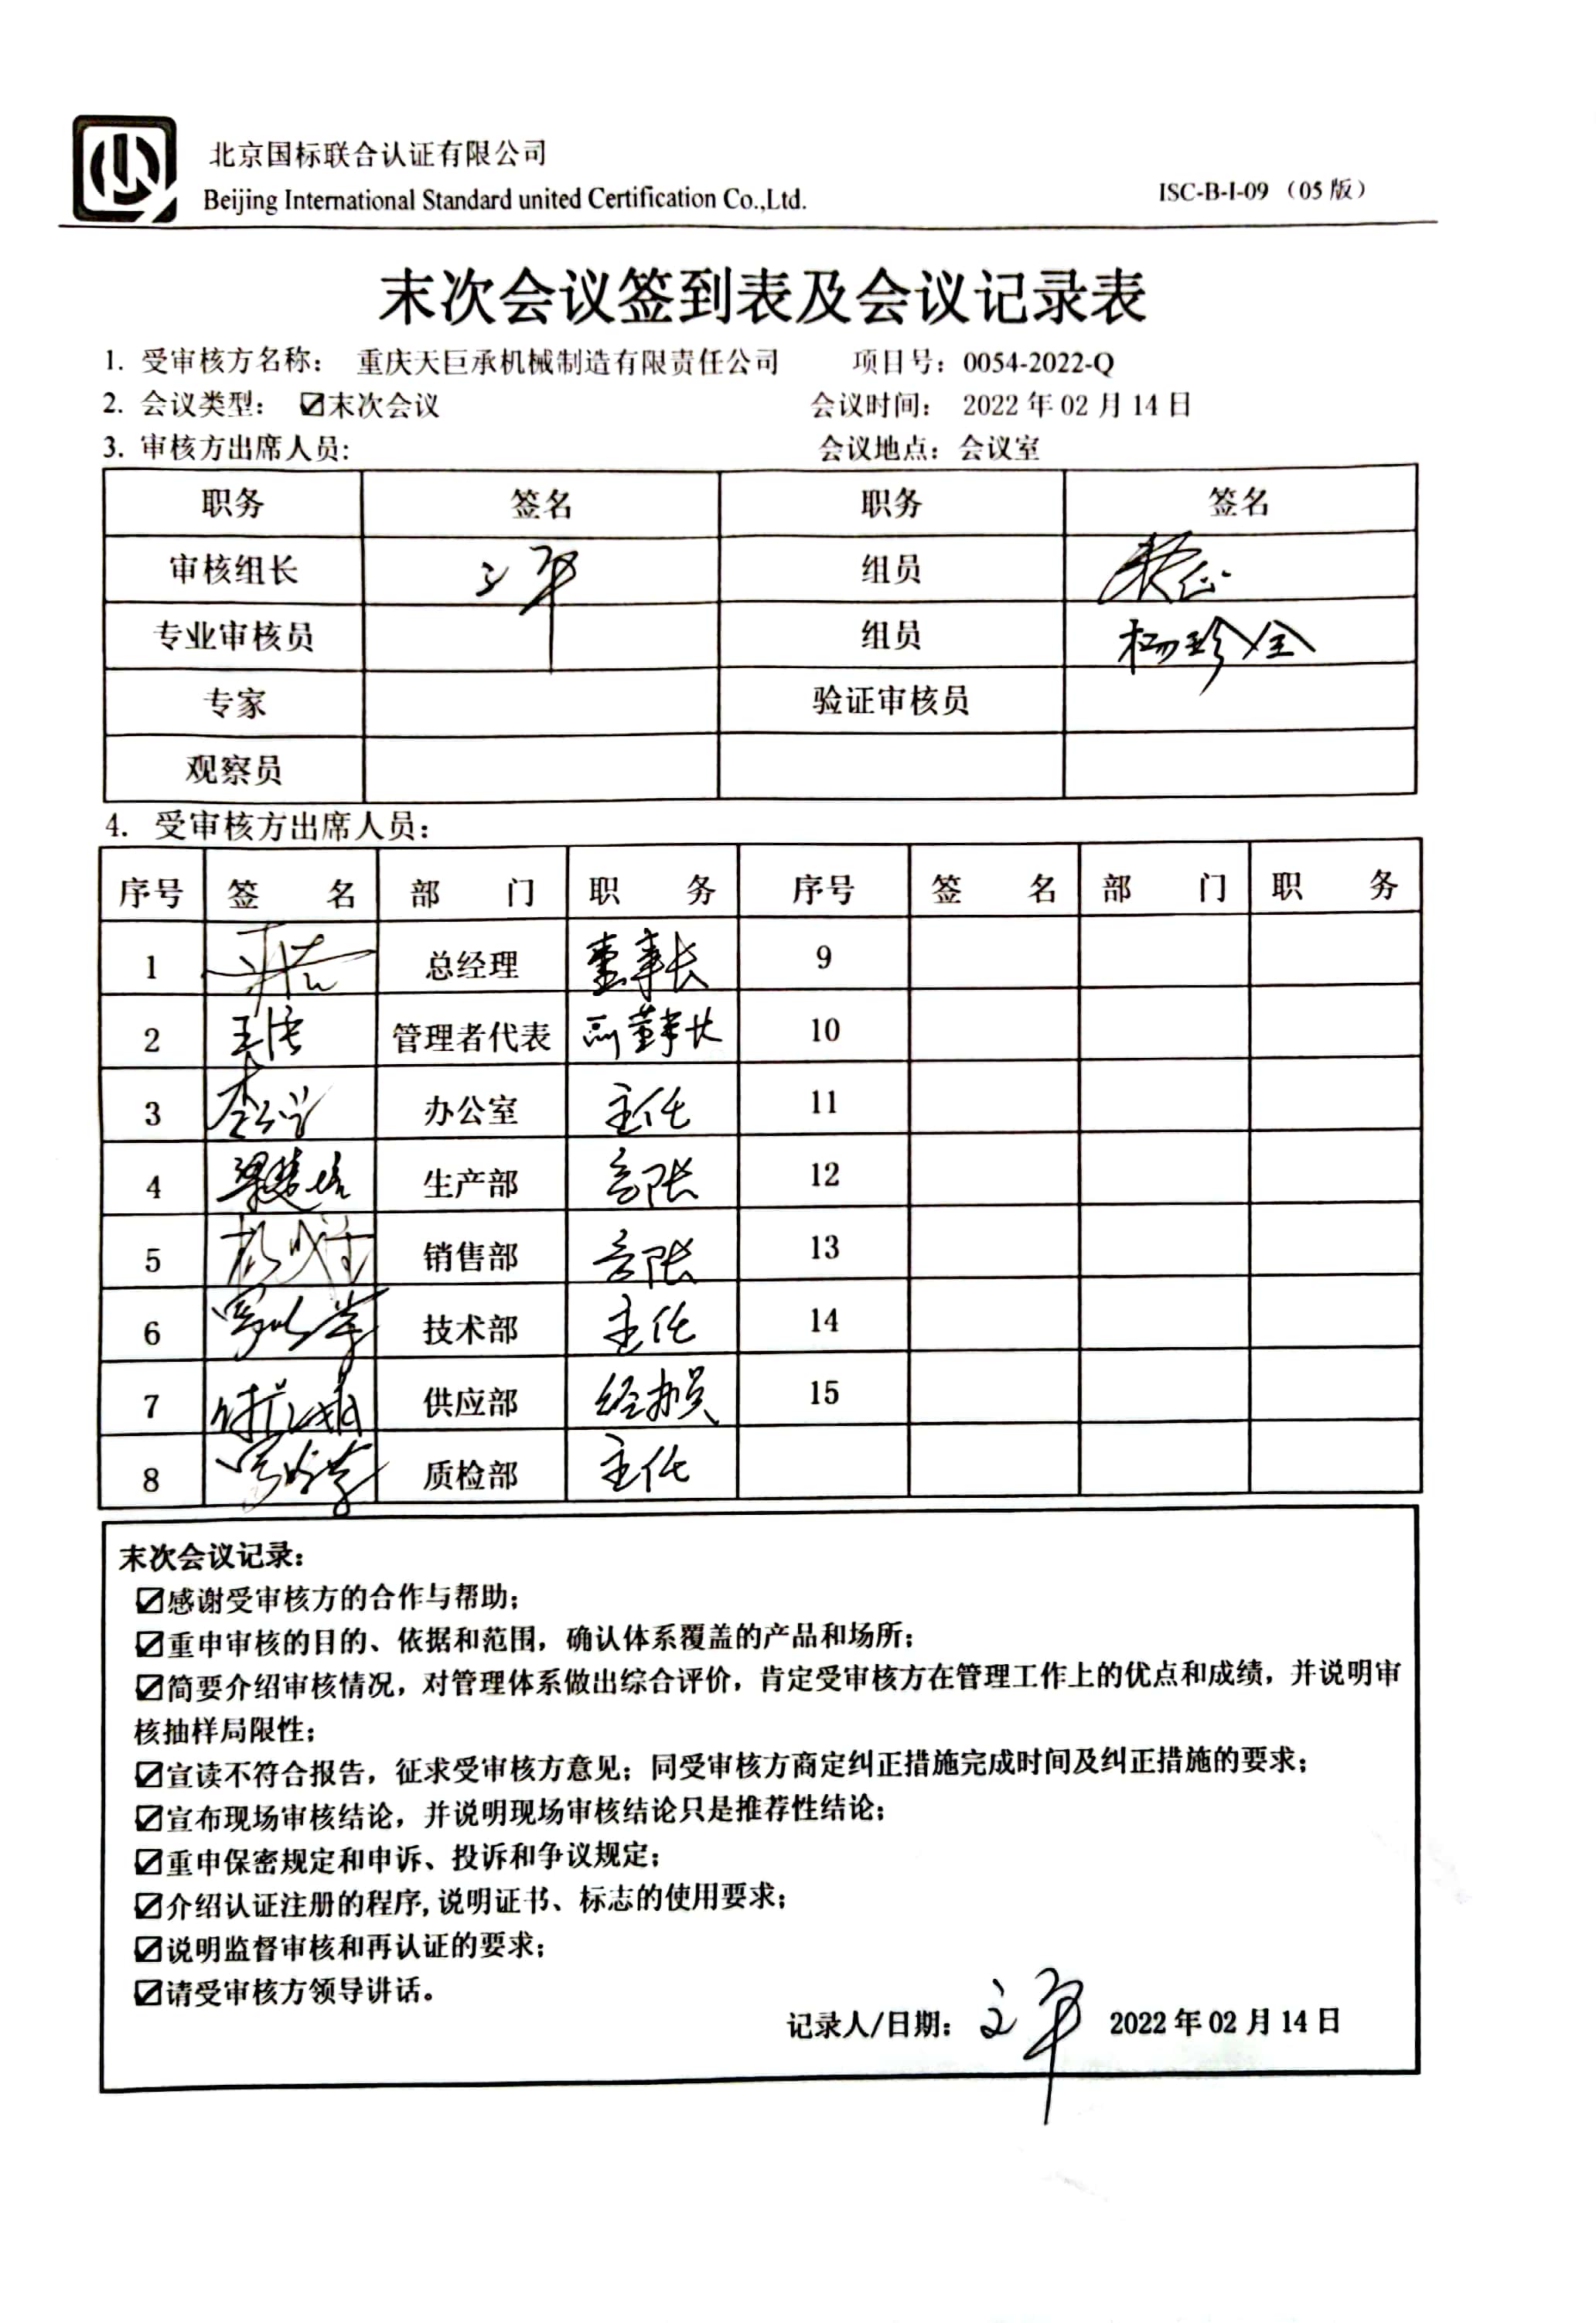 北京国标联合认证有限公司
Beijing International Standard united Certification Co.,Ltd.
ISC-B-I-09（05 版）
末次会议签到表及会议记录表
1. 受审核方名称： 重庆天巨承机械制造有限责任公司 项目号：0054-2022-Q
2. 会议类型： ☑末次会议 会议时间： 2022 年 02 月 14 日
3. 审核方出席人员: 会议地点：会议室
职务 签名 职务 签名
审核组长 文平 组员
专业审核员 组员 杨珍全
专家 验证审核员
观察员
4. 受审核方出席人员：
序号 签 名 部 门 职 务 序号 签 名 部 门 职 务
1 总经理 董事长 9
2 管理者代表 副董事长 10
3 办公室 主任 11
4 生产部 部长 12
5 销售部 部长 13
6 技术部 主任 14
7 供应部 经办员 15
8 质检部 主任
末次会议记录：
☑感谢受审核方的合作与帮助；
☑重申审核的目的、依据和范围，确认体系覆盖的产品和场所；
☑简要介绍审核情况，对管理体系做出综合评价，肯定受审核方在管理工作上的优点和成绩，并说明审
核抽样局限性；
☑宣读不符合报告，征求受审核方意见；同受审核方商定纠正措施完成时间及纠正措施的要求；
☑宣布现场审核结论，并说明现场审核结论只是推荐性结论；
☑重申保密规定和申诉、投诉和争议规定；
☑介绍认证注册的程序,说明证书、标志的使用要求；
☑说明监督审核和再认证的要求；
☑请受审核方领导讲话。
记录人/日期： 文平 2022 年 02 月 14 日